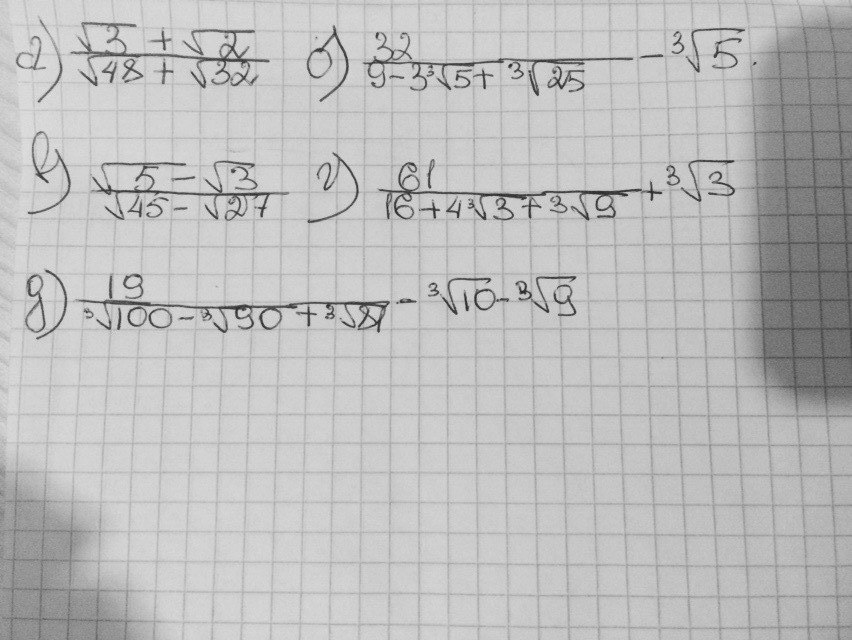 а) (√3 + √2)/(√48 + √32) б) 32/(9 - 3∛5 + ∛25) - ∛5.
в) (√5 - √3)/(√45 - √27) г) 61/(16 + 4∛3 + ∛9) + ∛3
д) 19/(∛100 - ∛90 + ∛81) - ∛10 - ∛9